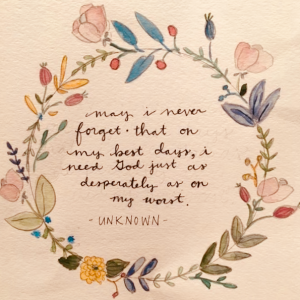 may i never
forget · that on
my best days, i
need God just as
desperately as on
my worst.
- UNKNOWN -